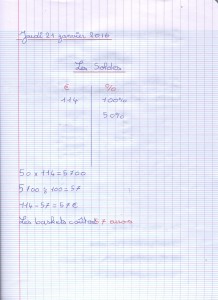 Jeudi 21 janvier 2016
Les Soldes
€ %
114 100%
50%
50 x 114 = 5700
5700 : 100 = 57
114 - 57 = 57€
Les baskets coûtent euros